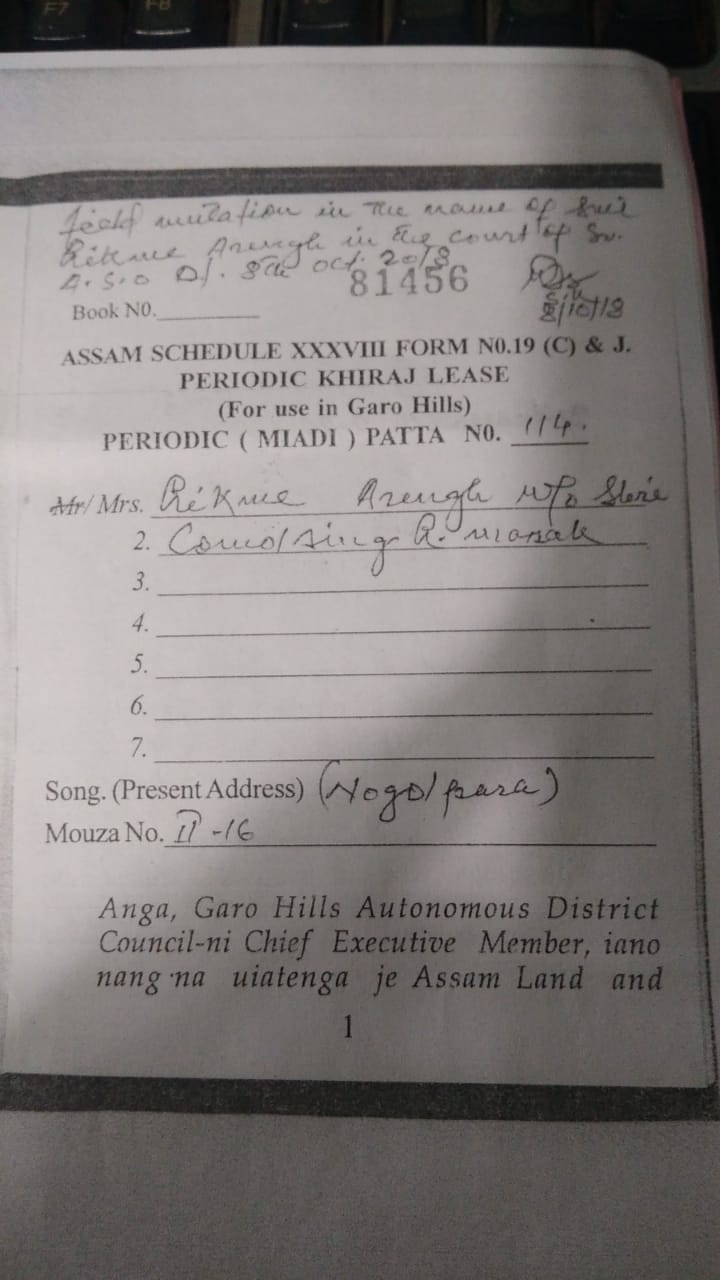 F7 F8
field mutation in the name of Smti
Rikme Arengh in the court of Sr.
A.S.O Dt. 8th Oct. 2018
81456
8/10/18
Book N0.
ASSAM SCHEDULE XXXVIII FORM N0.19 (C) & J.
PERIODIC KHIRAJ LEASE
(For use in Garo Hills)
PERIODIC ( MIADI ) PATTA N0. 114.
Mr/ Mrs. Rikme Arengh W/o
2. R. marak
3.
4.
5.
6.
7.
Song. (Present Address) (Nogolpara)
Mouza No. II -16
Anga, Garo Hills Autonomous District
Council-ni Chief Executive Member, iano
nang·na uiatenga je Assam Land and
1